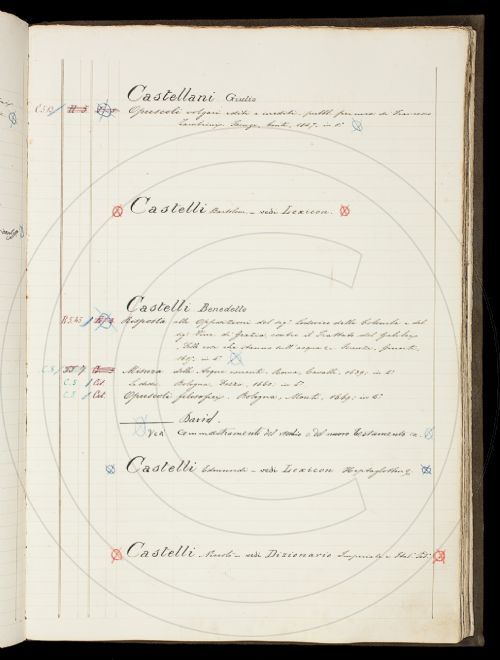 Castellani Giulio
C.5.12 Opuscoli volgari editi e inediti, pubbl. per cura di Francesco
Zambrini. Faenza, Conti, 1847, in 8°
Castelli Bartolom. – vedi Lexicon.
Castelli Benedetto
Risposta alle Opposizioni del sig. Lodovico delle Colombe e del
sig. Vinc. di Grazia, contro il Trattato del Galilei
delle cose che stanno sull'acqua. Firenze, Giunti,
in 4°
C.5 Misura delle Acque correnti. Roma, Cavalli, 1639, in 4°
C.5 Cat. Le stesse. Bologna, Dozza, 1660, in 4°
C.5 Cat. Opuscoli filosofici. Bologna, 1669, in 4°
David.
Ved. del vecchio e del nuovo Testamento
Castelli Edmundi – vedi Lexicon Heptaglotton
Castelli Nicolò – vedi Dizionario